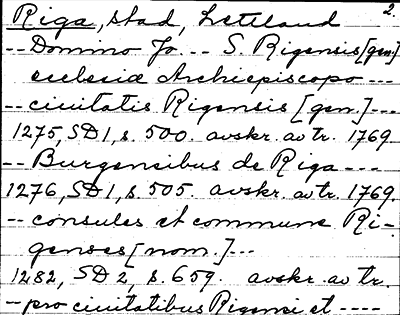 2.
Riga, stad, Lettland
-- Domino Jo -- S. Rigensis [gen]
ecclesiæ Archiepiscopo ---
-- ciuitatis Rigensis [gen.] ---
1275, SD 1, s. 500. avskr. av tr. 1769
-- Burgensibus de Riga ---
1276, SD 1, s. 505. avskr. av tr. 1769.
-- consules et commune Ri-
genses [nom.] ---
1282, SD 2, s. 659. avskr. av tr.
-- pro ciuitatibus Rigensi et ----